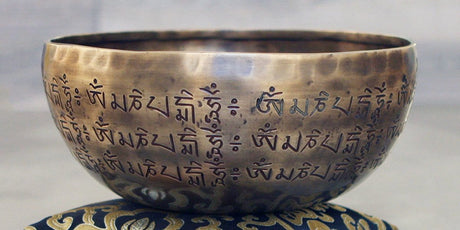 ཨོཾ་མ་ཎི་པདྨེ་ཧཱུྃ༔ ཨོཾ་མ་ཎི་པདྨེ་ཧཱུྃ
ཨོཾ་མ་ཎི་པདྨེ་ཧཱུྃ༔ ཨོཾ་མ་ཎི་པདྨེ་ཧཱུྃ
ཨོཾ་མ་ཎི་པདྨེ་ཧཱུྃ༔ ཨོཾ་མ་ཎི་པདྨེ་ཧཱུྃ